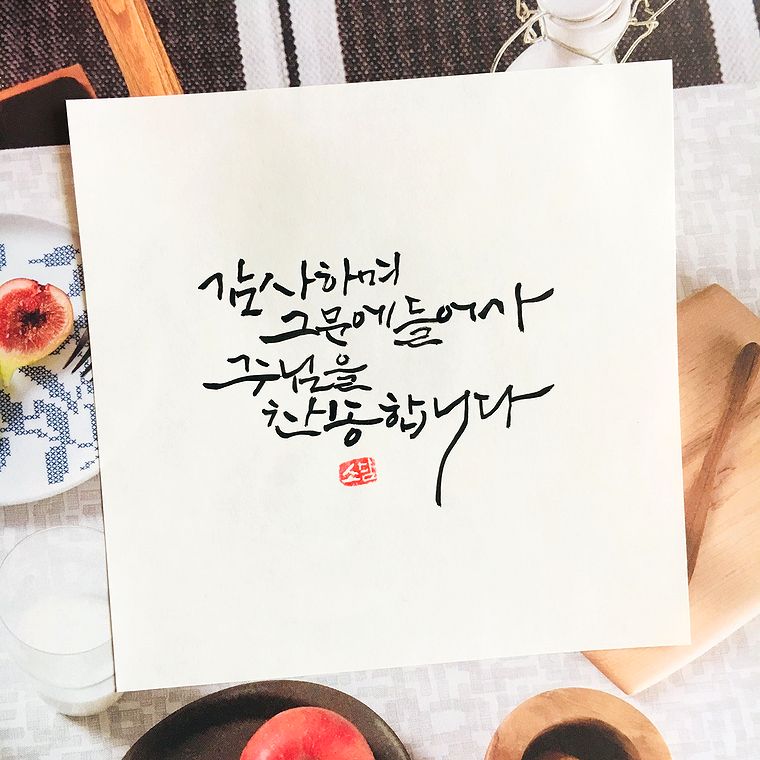 감사하며
그문에들어가
주님을
찬송합니다
소담